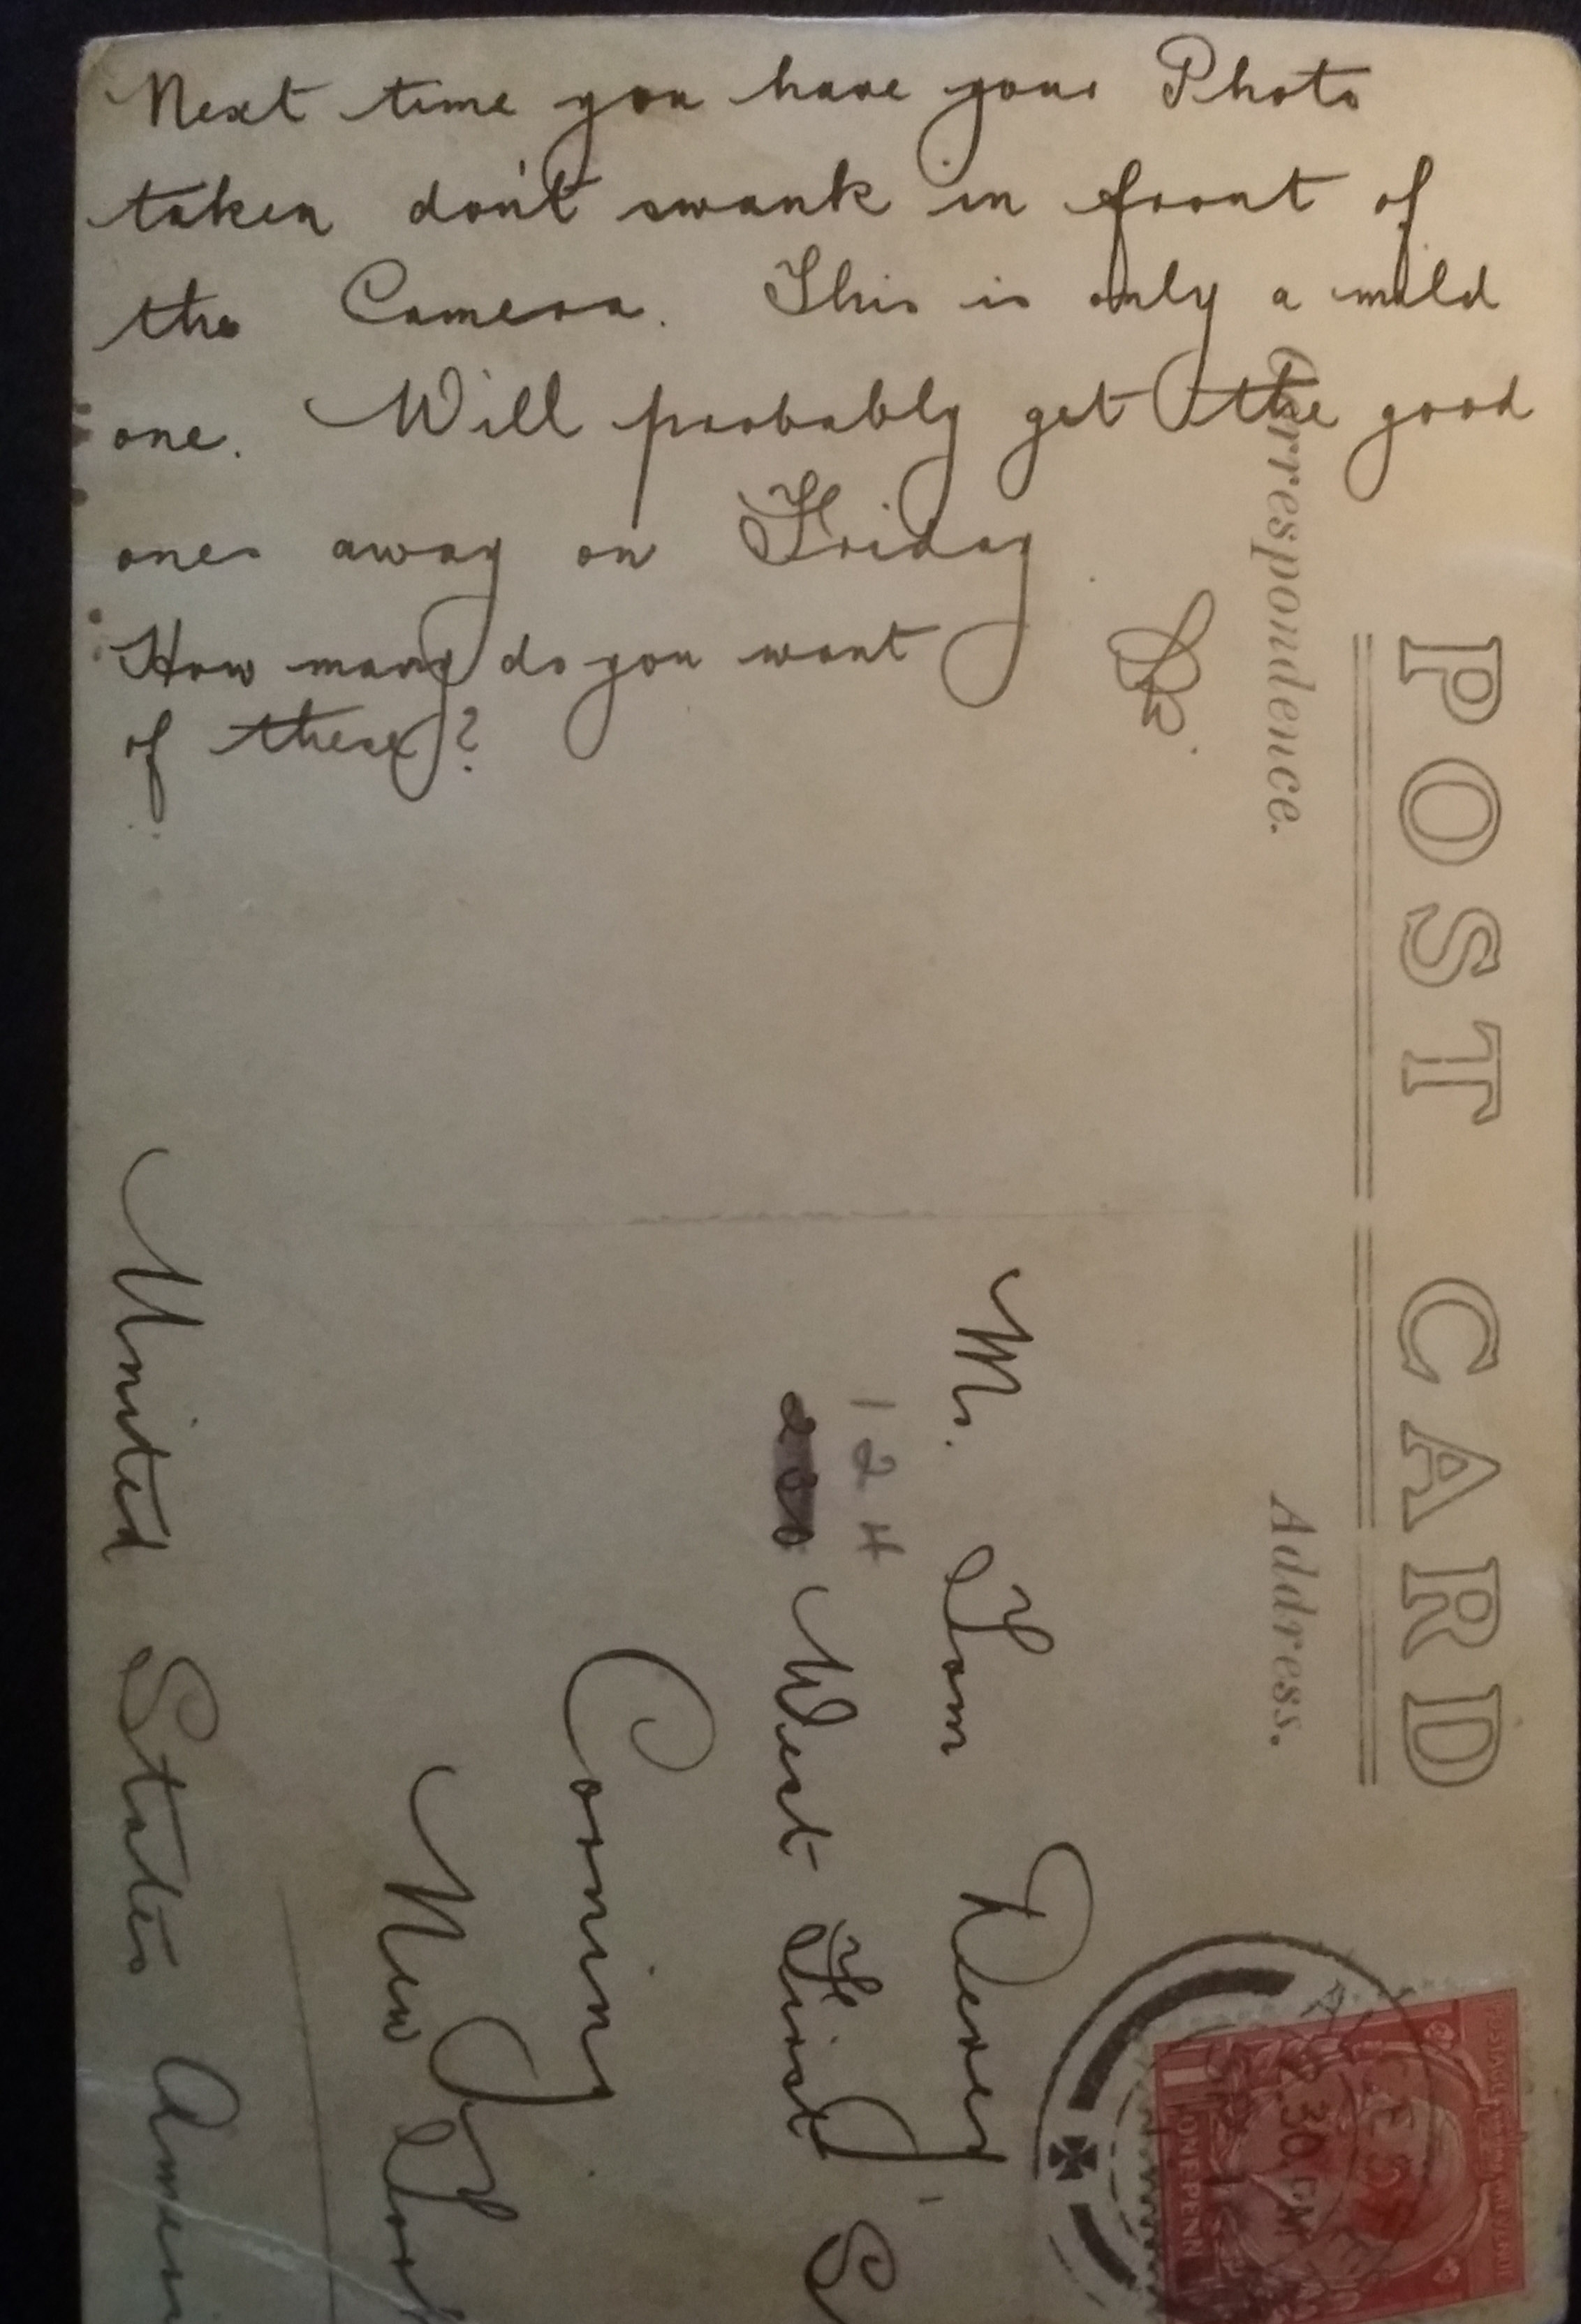 Next time you have your Photo
taken don't swank in front of
the Camera. This is only a mild
one. Will probably get the good
ones away on Friday
How many do you want
of these?
POST CARD
Correspondence.
Address.
Mr. Tom
124
West First S
Corning
New
United States
ONE PENN